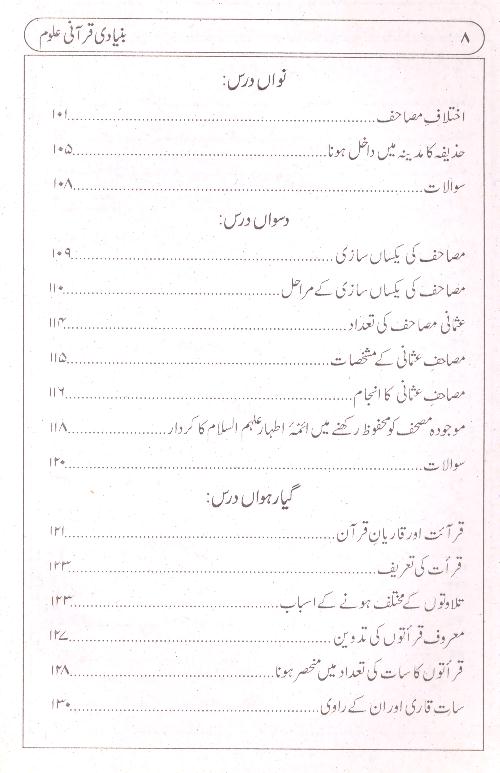 ۸ بنیادی قرآنی علوم
نواں درس:
اختلافِ مصاحف ........ ۱۰۱
حذیفہ کا مدینہ میں داخل ہونا ........ ۱۰۵
سوالات ........ ۱۰۸
دسواں درس:
مصاحف کی یکساں سازی ........ ۱۰۹
مصاحف کی یکساں سازی کے مراحل ........ ۱۱۰
عثمانی مصاحف کی تعداد ........ ۱۱۴
مصاحف عثمانی کے مشخصات ........ ۱۱۵
مصاحف عثمانی کا انجام ........ ۱۱۶
موجودہ مصحف کو محفوظ رکھنے میں ائمۂ اطہار علیہم السلام کا کردار ........ ۱۱۸
سوالات ........ ۱۲۰
گیارہواں درس:
قرآئت اور قاریانِ قرآن ........ ۱۲۱
قرأت کی تعریف ........ ۱۲۳
تلاوتوں کے مختلف ہونے کے اسباب ........ ۱۲۳
معروف قرأتوں کی تدوین ........ ۱۲۷
قرأتوں کا سات کی تعداد میں منحصر ہونا ........ ۱۲۸
سات قاری اور ان کے راوی ........ ۱۳۰